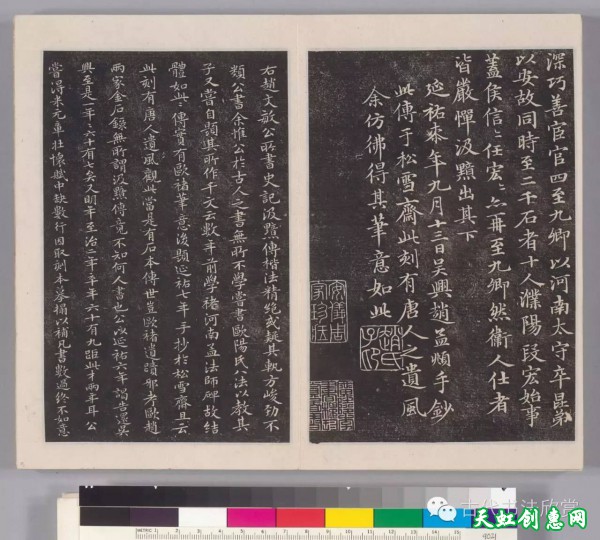 深巧善宦官四至九卿以河南太守卒昆弟
以安故同時至二千石者十人濮陽段宏始事
蓋侯信信任宏宏亦再至九卿然衛人仕者
皆嚴憚汲黯出其下
延祐柒年九月十三日吴興趙孟頫手鈔
此傳于松雪齋此刻有唐人之遺風
余仿彿得其筆意如此
趙氏子昂
右趙文敏公所書史記汲黯傳楷法精絶或疑其軌方峻勁不
類公書余惟公於古人之書無所不學嘗書歐陽氏八法以教其
子又嘗自題其所作千文云數年前學褚河南孟法師碑故結
體如此此傳實有歐褚筆意後題延祐七年手抄於松雪齋且云
此刻有唐人遺風觀此當是有石本傳世豈歐褚遺蹟邪考歐趙
兩家金石錄無所謂汲黯傳竟不知何人書也公以延祐六年謁告還吴
興至是一年六十有七矣又明年至治二年卒年六十有九距此才兩年耳公
嘗得米元章壯懷賦中缺數行因取刻本摹搨以補凡書數過終不如意
古代书法欣赏
天虹创意网